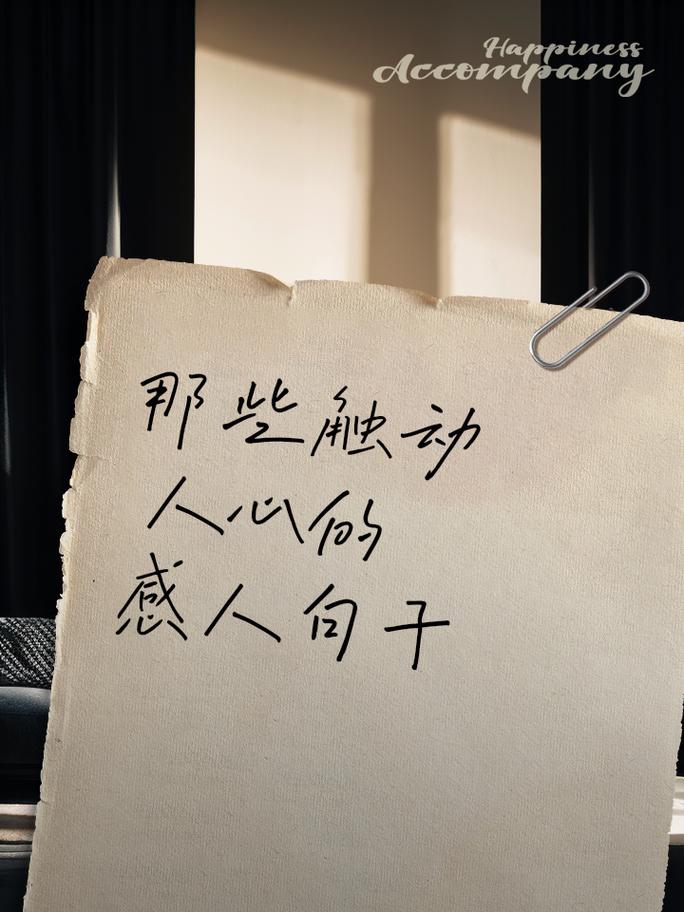 Happiness
Accompany
那些触动
人心的
感人句子